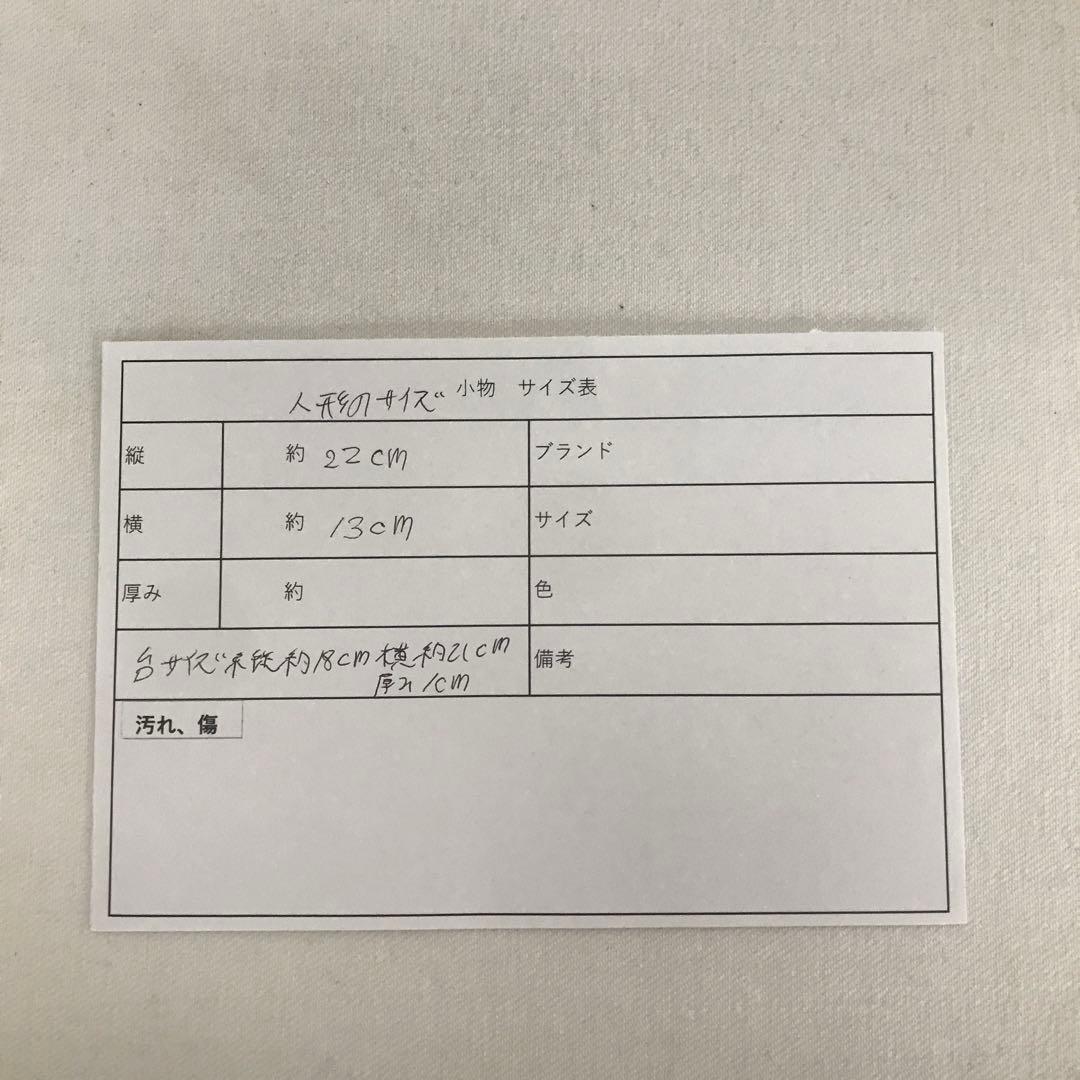 人形のサイズ 小物 サイズ表
縦 約 22cm ブランド
横 約 13cm サイズ
厚み 約 色
台サイズ 縦約18cm 横約21cm 備考
厚み1cm
汚れ、傷